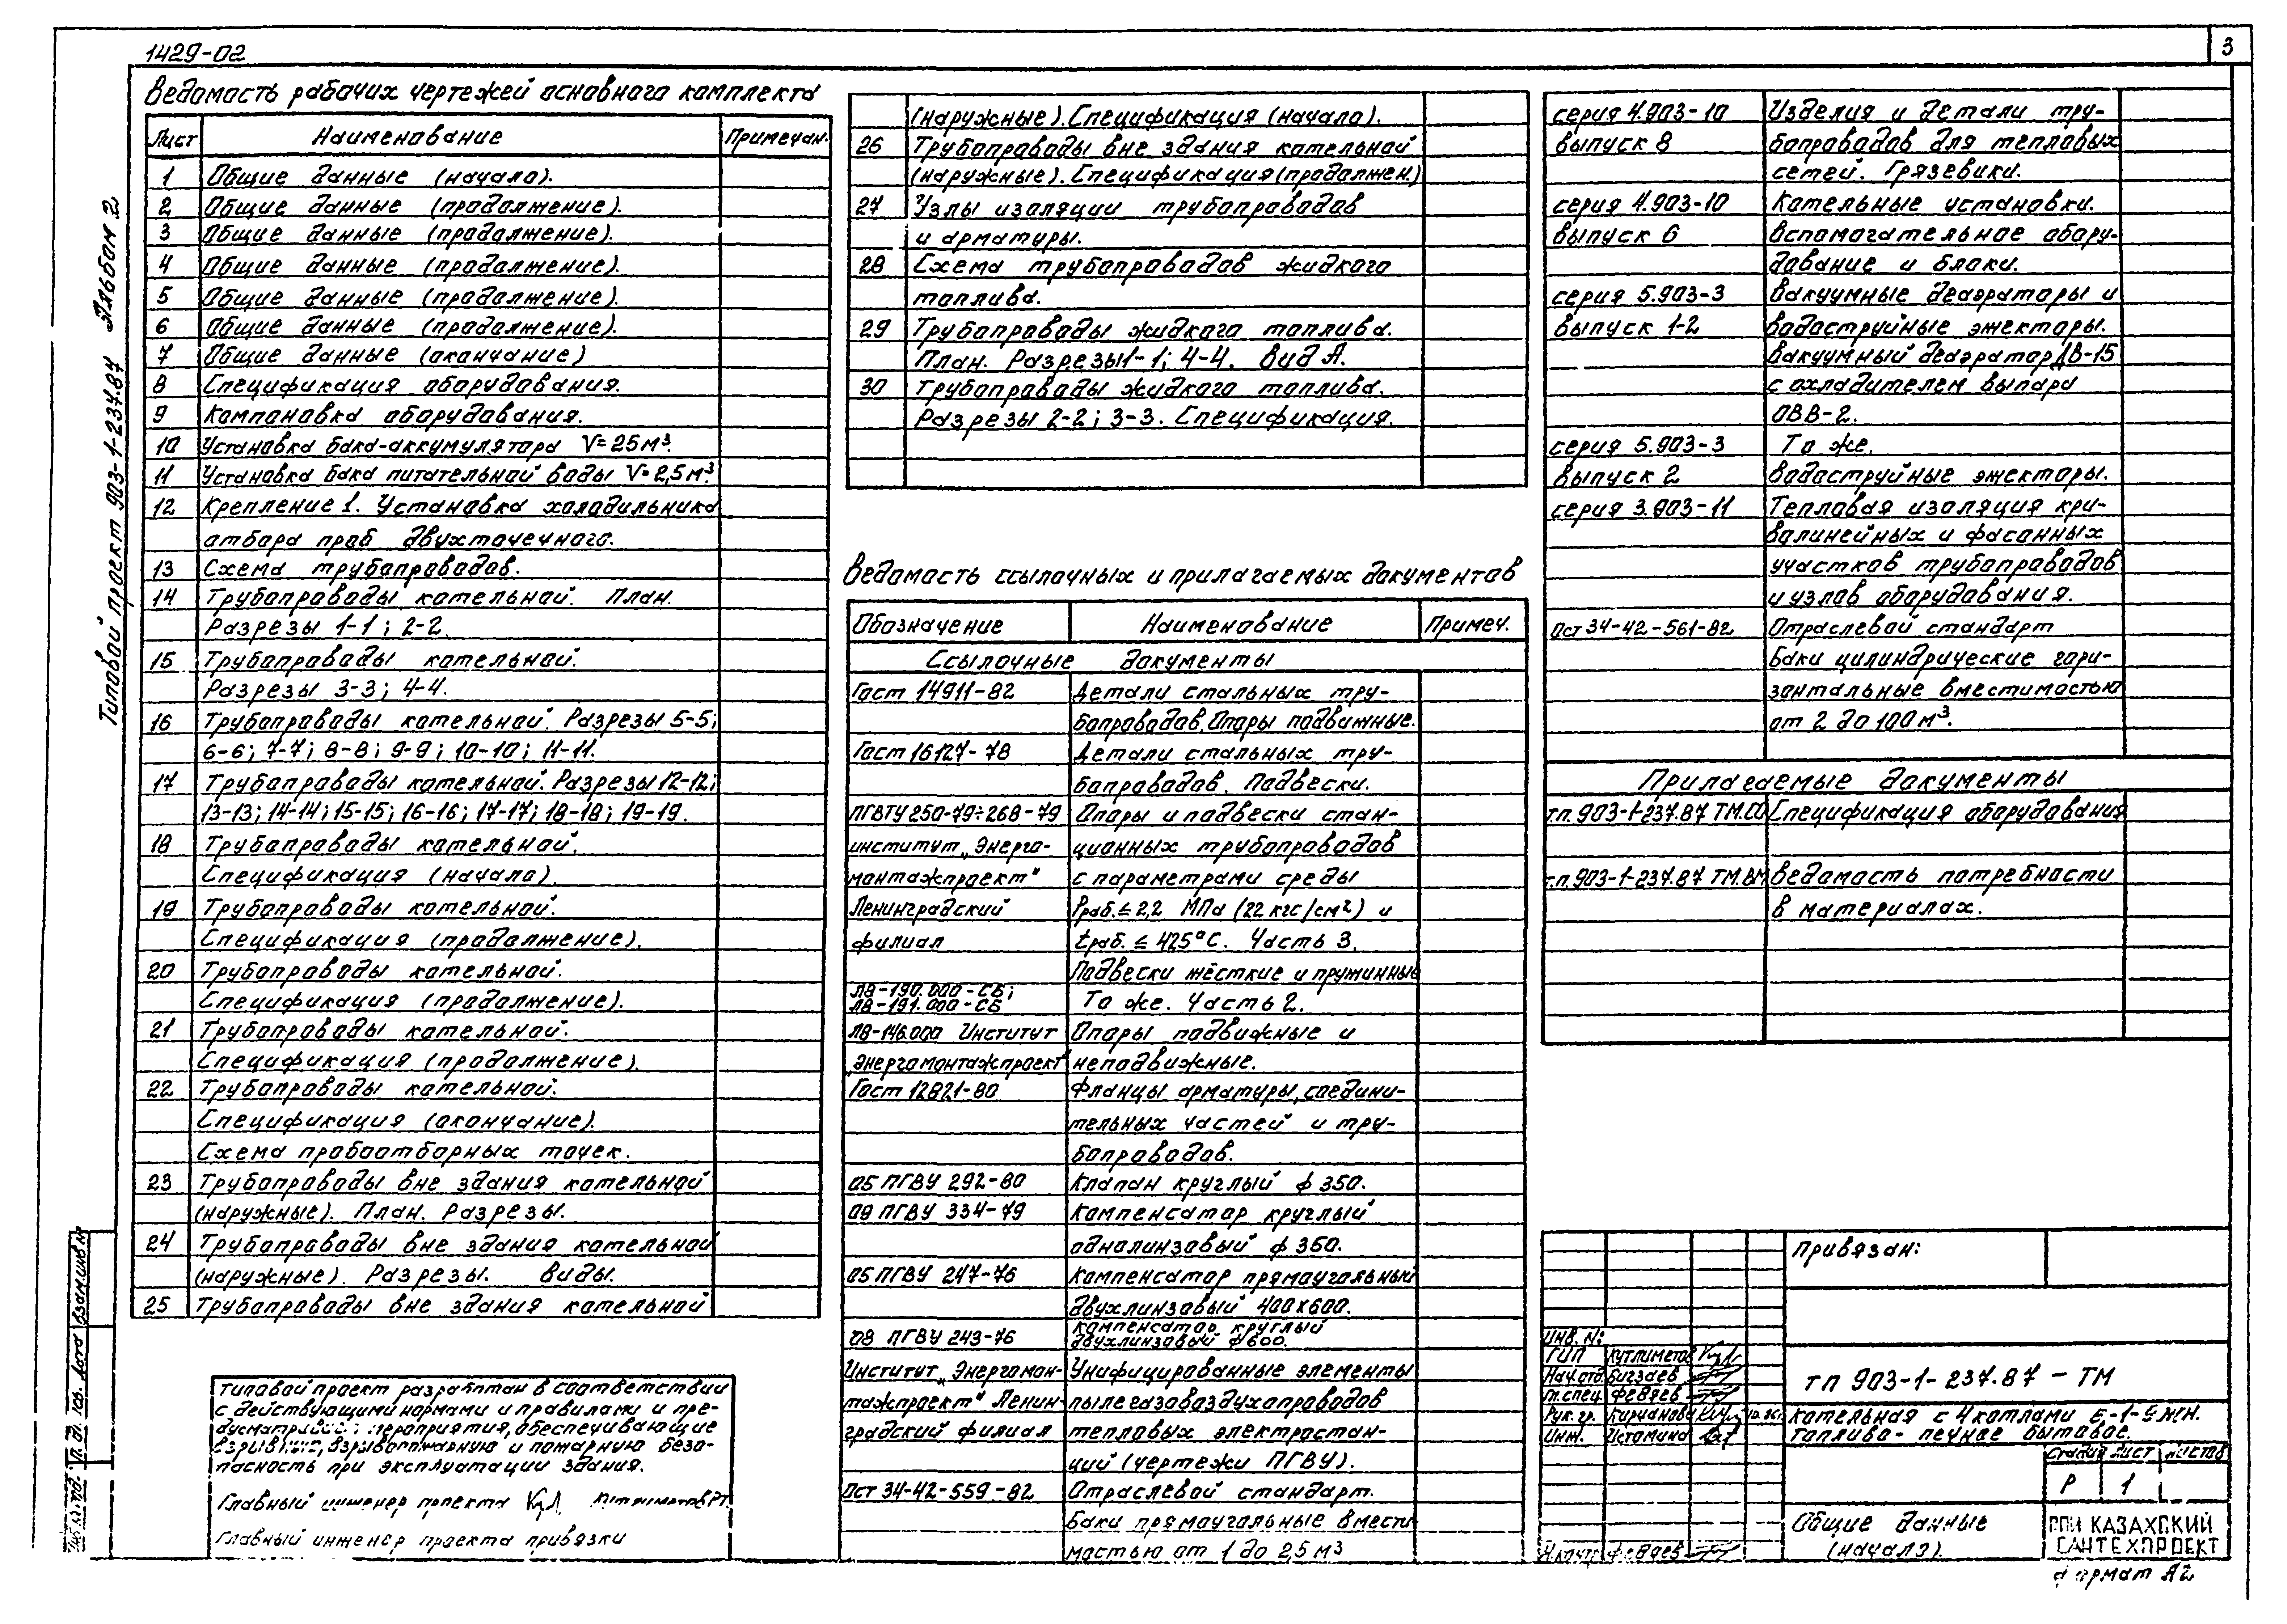 3
1429-02
Типовой проект 903-1-237.87 Альбом 2
Ведомость рабочих чертежей основного комплекта
Лист Наименование Примечан.
1 Общие данные (начало).
2 Общие данные (продолжение).
3 Общие данные (продолжение).
4 Общие данные (продолжение).
5 Общие данные (продолжение).
6 Общие данные (продолжение).
7 Общие данные (окончание)
8 Спецификация оборудования.
9 Компановка оборудования.
10 Установка бака-аккумулятора V=25м³.
11 Установка бака питательной воды V=2,5м³.
12 Крепление 1. Установка холодильника
отбора проб двухточечного.
13 Схема трубопроводов.
14 Трубопроводы котельной. План.
Разрезы 1-1; 2-2.
15 Трубопроводы котельной.
Разрезы 3-3; 4-4.
16 Трубопроводы котельной. Разрезы 5-5;
6-6; 7-7; 8-8; 9-9; 10-10; 11-11.
17 Трубопроводы котельной. Разрезы 12-12;
13-13; 14-14; 15-15; 16-16; 17-17; 18-18; 19-19.
18 Трубопроводы котельной.
Спецификация (начало).
19 Трубопроводы котельной.
Спецификация (продолжение).
20 Трубопроводы котельной.
Спецификация (продолжение).
21 Трубопроводы котельной.
Спецификация (продолжение).
22 Трубопроводы котельной.
Спецификация (окончание).
Схема пробоотборных точек.
23 Трубопроводы вне здания котельной
(наружные). План. Разрезы.
24 Трубопроводы вне здания котельной
(наружные). Разрезы. Виды.
25 Трубопроводы вне здания котельной
(наружные). Спецификация (начало).
26 Трубопроводы вне здания котельной
(наружные). Спецификация (продолжен.)
27 Узлы изоляции трубопроводов
и арматуры.
28 Схема трубопроводов жидкого
топлива.
29 Трубопроводы жидкого топлива.
План. Разрезы 1-1; 4-4. Вид А.
30 Трубопроводы жидкого топлива.
Разрезы 2-2; 3-3. Спецификация.
Ведомость ссылочных и прилагаемых документов
Обозначение Наименование Примеч.
Ссылочные документы
Гост 14911-82 Детали стальных тру-
бопроводов. Опоры подвижные.
Гост 16127-78 Детали стальных тру-
бопроводов. Подвески.
ПГВТУ 250-79÷268-79 Опоры и подвески стан-
институт „Энерго- ционных трубопроводов
монтажпроект" с параметрами среды
Ленинградский Рраб.≤2,2 МПа (22 кгс/см²) и
филиал tраб.≤425°С. Часть 3.
Подвески жёсткие и пружинные
Л8-190.000-СБ;
Л8-191.000-СБ То же. Часть 2.
Л8-146.000 Институт Опоры подвижные и
„Энергомонтажпроект" неподвижные.
Гост 12821-80 Фланцы арматуры, соедини-
тельных частей и тру-
бопроводов.
05 ПГВУ 292-80 Клапан круглый ф 350.
09 ПГВУ 334-79 Компенсатор круглый
однолинзовый ф 350.
05 ПГВУ 247-76 Компенсатор прямоугольный
двухлинзовый 400х600.
08 ПГВУ 243-76 Компенсатор круглый
двухлинзовый ф 600.
Институт „Энергомон- Унифицированные элементы
тажпроект" Ленин- пылегазовоздухопроводов
градский филиал тепловых электростан-
ций (чертежи ПГВУ).
Ост 34-42-559-82 Отраслевой стандарт.
Баки прямоугольные вмести
мостью от 1 до 25 м³
серия 4.903-10 Изделия и детали тру-
выпуск 8 бопроводов для тепловых
сетей. Грязевики.
серия 4.903-10 Котельные установки.
выпуск 6 Вспомогательное обору-
дование и блоки.
серия 5.903-3 Вакуумные деаэраторы и
выпуск 1-2 водоструйные эжекторы.
Вакуумный деаэратор ДВ-15
с охладителем выпара
ОВВ-2.
серия 5.903-3 То же.
выпуск 2 Водоструйные эжекторы.
серия 3.903-11 Тепловая изоляция кри-
волинейных и фасонных
участков трубопроводов
и узлов оборудования.
Ост 34-42-561-82 Отраслевой стандарт
Баки цилиндрические гори-
зонтальные вместимостью
от 2 до 100 м³.
Прилагаемые документы
т.п. 903-1-237.87 ТМ.СО Спецификация оборудования
т.п. 903-1-237.87 ТМ.ВМ Ведомость потребности
в материалах.
Типовой проект разработан в соответствии
с действующими нормами и правилами и пре-
дусматривает мероприятия, обеспечивающие
взрывную, взрывопожарную и пожарную безо-
пасность при эксплуатации здания.
Главный инженер проекта
Главный инженер проекта привязки
Взам.инв.№
Привязан:
Инв. №:
ГИП Кутлиметов
Нач.отд.
гл.спец. Федяев
Рук. гр. Кирианова
Инж. Истомина
Н.контр. Федяев
тп 903-1-237.87 - ТМ
Котельная с 4 котлами Е-1-9 жн.
топливо - печное бытовое.
Стадия Лист Листов
Р 1
Общие данные
(начало).
ГПИ КАЗАХСКИЙ
САНТЕХПРОЕКТ
формат А2